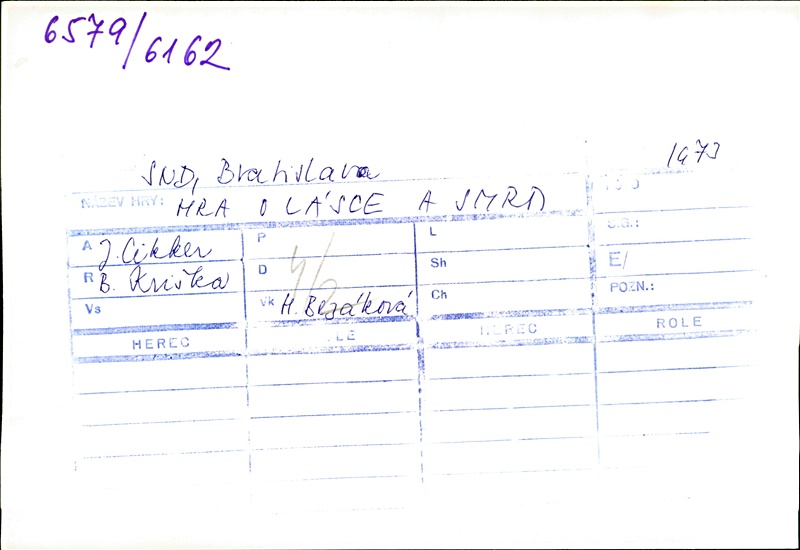 6579/6162
SND, Bratislava 1973
NÁZEV HRY: HRA O LÁSCE A SMRTI
A J. Cikker P L S.G.:
R B. Kriška D Sh E/
Vs Vk H. Bezáková Ch POZN.:
HEREC HEREC ROLE